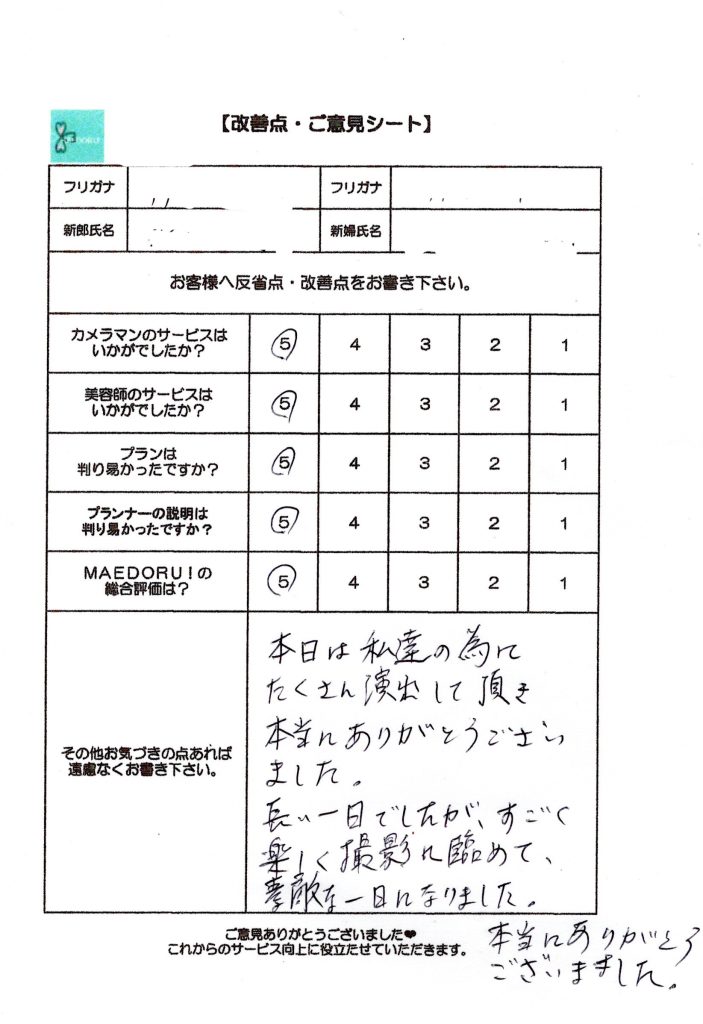 【改善点・ご意見シート】
フリガナ
フリガナ
新郎氏名
新婦氏名
お客様へ反省点・改善点をお書き下さい。
カメラマンのサービスは
いかがでしたか？
5 4 3 2 1
美容師のサービスは
いかがでしたか？
5 4 3 2 1
プランは
判り易かったですか？
5 4 3 2 1
プランナーの説明は
判り易かったですか？
5 4 3 2 1
ＭＡＥＤＯＲＵ！の
総合評価は？
5 4 3 2 1
その他お気づきの点あれば
遠慮なくお書き下さい。
本日は私達の為に
たくさん演出して頂き
本当にありがとうござい
ました。
長い一日でしたが、すごく
楽しく撮影に臨めて、
素敵な一日になりました。
本当にありがとう
ございました。
ご意見ありがとうございました❤
これからのサービス向上に役立たせていただきます。